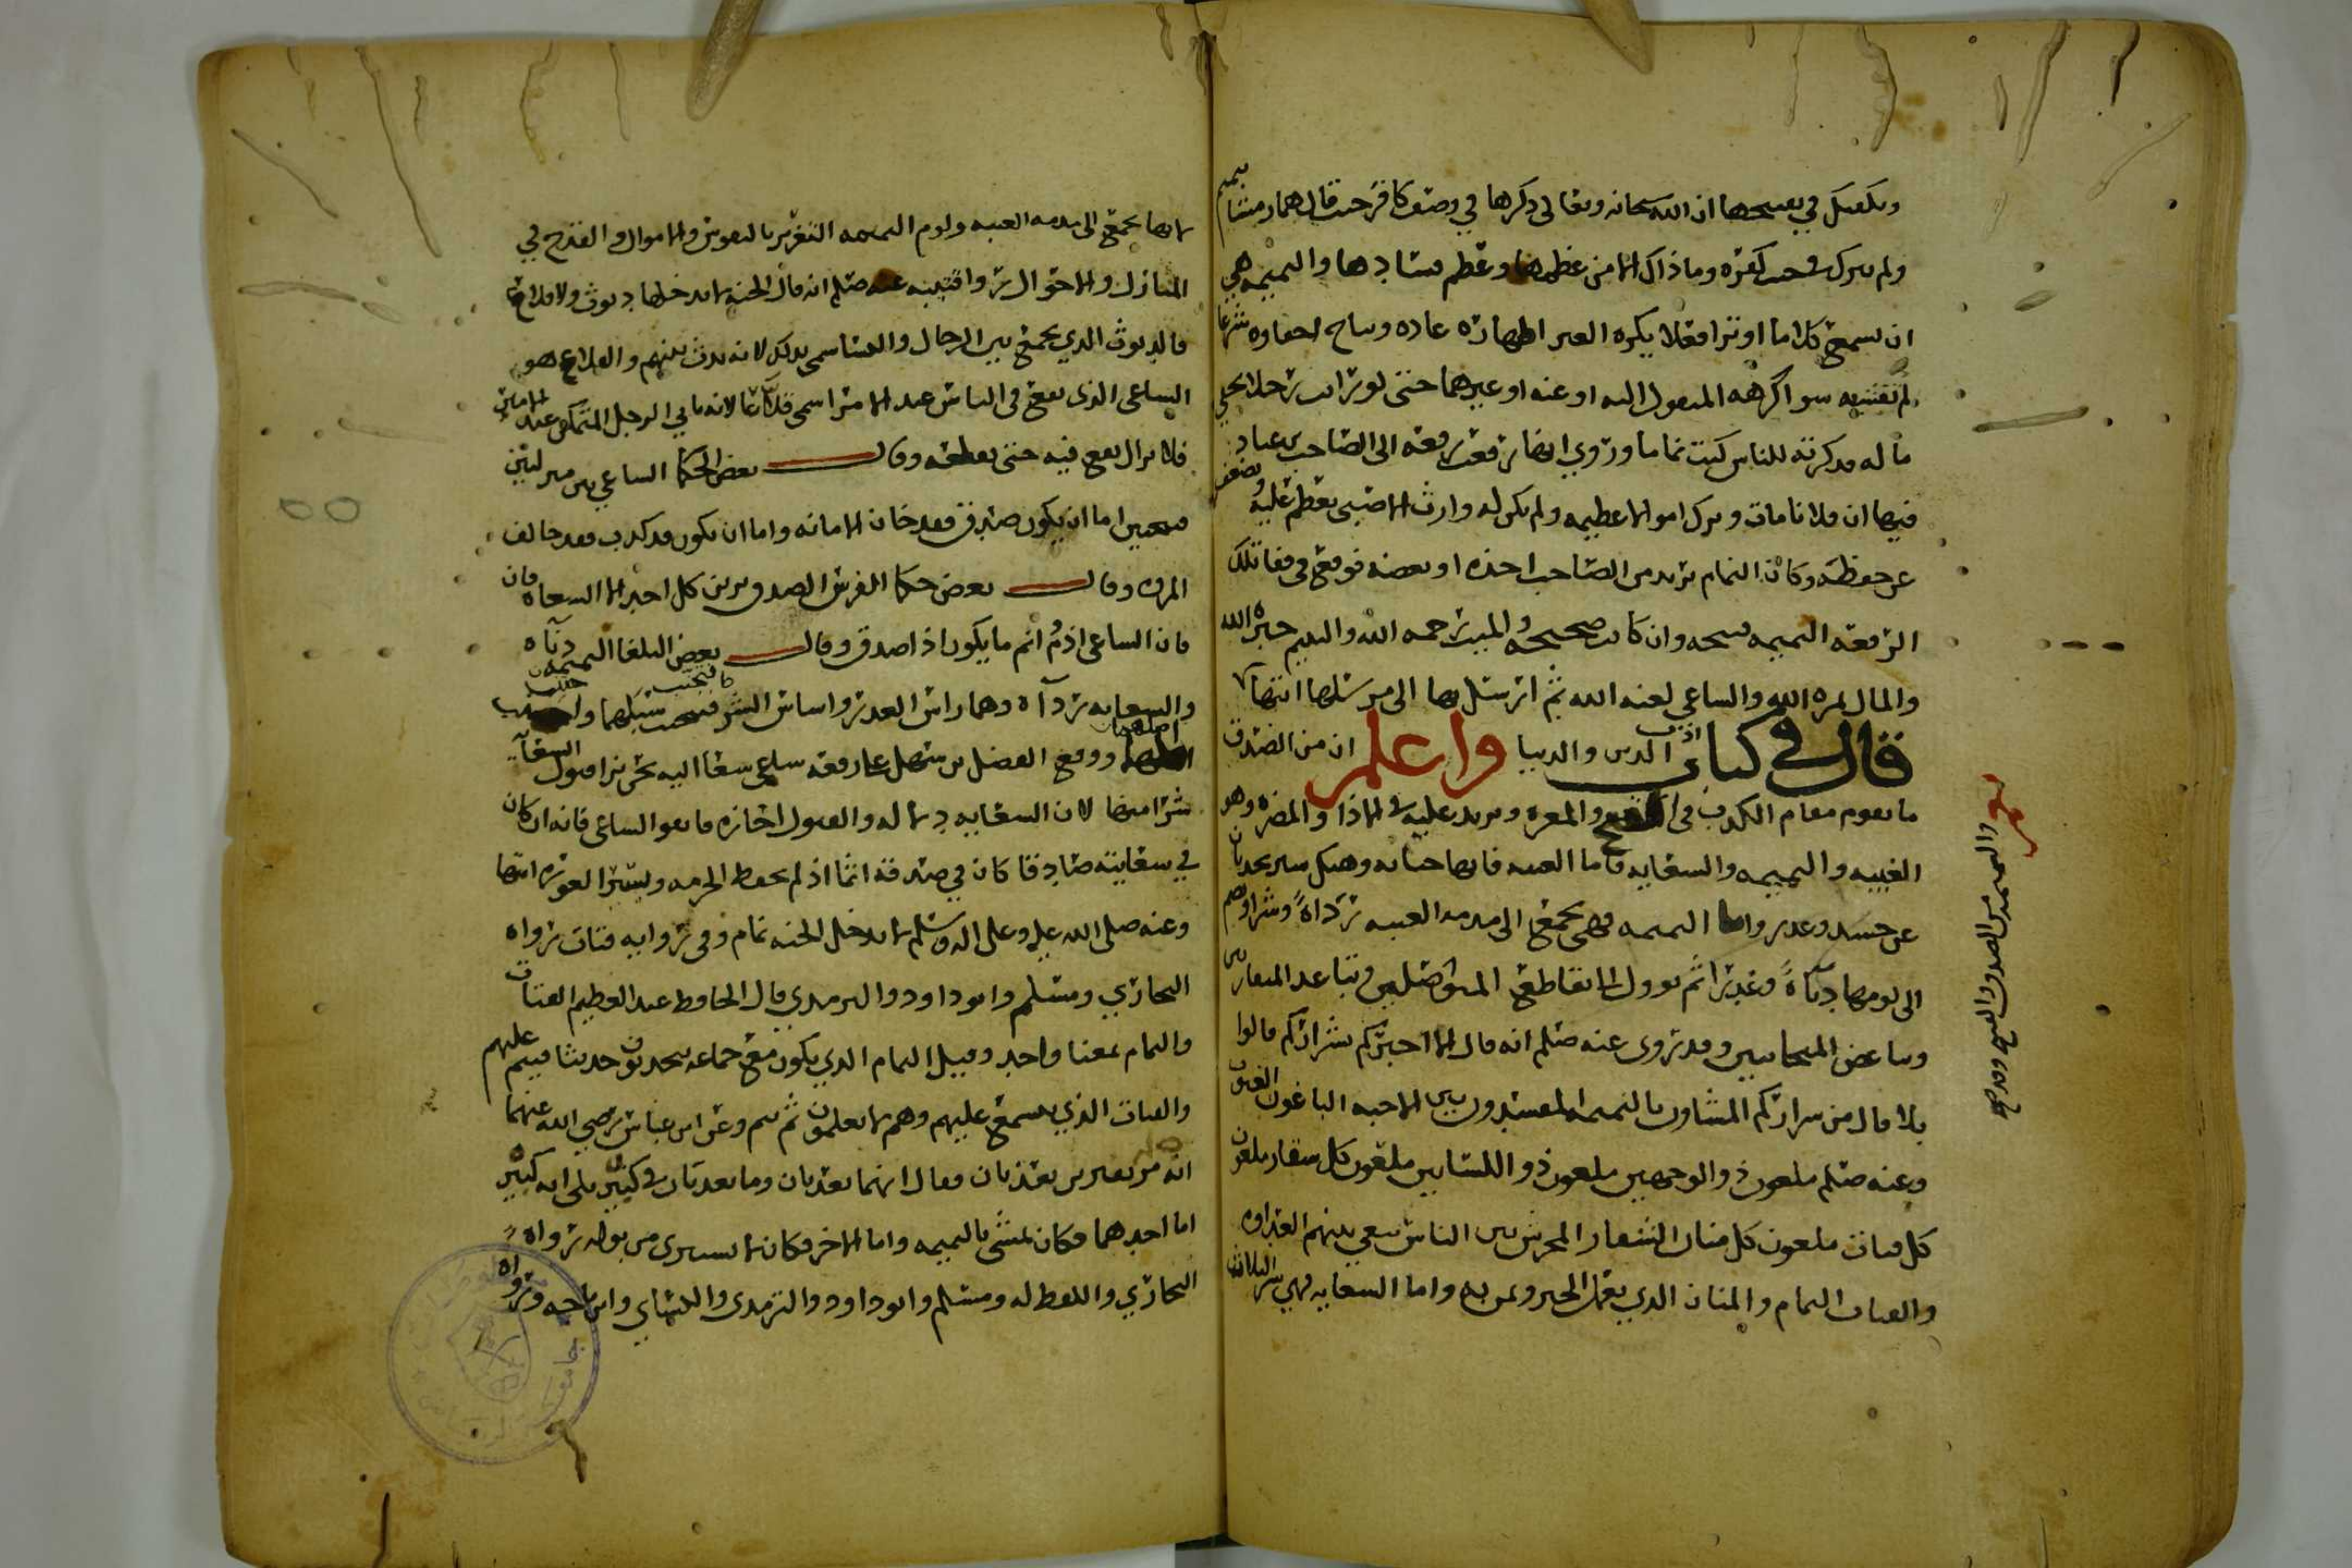 ويكفيك في تقبيحها ان الله سبحانه وتعالى ذكرها في وصف كافر حيث قال هماز مشاء بنميم
ولم يترك في حب كفره وما ذاك الا من عظمها وعظم فسادها والنميمه هي
ان تسمع كلاما او ترا فعلا يكره الغير اظهاره عاده ويباح اخفاوه شرعا
ثم تفشيه سوا كرهه المنقول اليه او عنه او غيرهما حتى لو رايت رجلا يخفي
ماله فذكرته للناس كنت نماما وروي ايضا رفعت رقعه الى الصاحب بن عباد
فيها ان فلانا مات وترك اموالا عظيمه ولم يكن له وارث الا صبي يعظم عليه ويضعف
عن حفظه وكان النمام يريد من الصاحب اخذه او بعضه فوقع في قفا تلك
الرقعه النميمه قبيحه وان كانت صحيحه والميت رحمه الله واليتيم جبره الله
والمال ثمره الله والساعي لعنه الله ثم ارسل بها الى مرسلها انتها
قال في كتاب ادب الدين والدنيا واعلم ان من الصدق
ما يقوم مقام الكذب في القبح والمعره ويزيد عليه في الاذا والمضره وهو
الغيبه والنميمه والسعايه فاما الغيبه فانها خيانه وهتك ستر يحدثان
عن حسد وغدر واما النميمه فهي تجمع الى مذمه الغيبه رداة وشرا وتضم
الى لومها دناة وغدرا ثم توول الى تقاطع المتواصلين وتباعد المتقاربين
وتباغض المتحابين وقد روى عنه صلم انه قال الا اخبركم بشراركم قالوا
بلا قال من شراركم المشاون بالنميمه المفسدون بين الاحبه الباغون العيوب
وعنه صلم ملعون ذو الوجهين ملعون ذو اللسانين ملعون كل شغار ملعون
كل قتات ملعون كل منان الشغار المحرش بين الناس يلقي بينهم العداوه
والقتات النمام والمنان الذي يعمل الخير ويمن به واما السعايه فهي شر الثلاث
والنميمه من الصدق القبيح
لانها تجمع الى مذمه الغيبه ولوم النميمه التغرير بالنفوس والاموال والقدح في
المنازل والاحوال روا قتيبه عنه صلم انه قال الجنه لا يدخلها ديوث ولا قلاع
فالديوث الذي يجمع بين الرجال والنسا سمي بذلك لانه يدث بينهم والقلاع هو
الساعي الذي يقع في الناس عند الامرا سمي قلاعا لانه ياتي الرجل المتمكن عند الامير
فلا يزال يقع فيه حتى يقلعه وقال بعض الحكما الساعي بين منزلتين
قبيحتين اما ان يكون صدق فقد خان الامانه واما ان يكون قد كذب فقد خالف
المروه وقال بعض حكما الفرس الصدق يزين كل احد الا السعاه فان
فان الساعي اذم واثم ما يكون اذا صدق وقال بعض البلغا النميمه دناه
والسعايه رداة وهما راس الغدر واساس الشر فتجنب سبلهما واجتنب
اهلهما ووقع الفضل بن سهل على رقعه ساعي سعا اليه نحن نرا قبول السعايه
شرا منها لان السعايه دلاله والقبول اجازه فاتقوا الساعي فانه ان كان
في سعايته صادقا كان في صدقه اثما اذ لم يحفظ الحرمه ويستر العوره انتها
وعنه صلى الله عليه وعلى اله وسلم لا يدخل الجنه نمام وفي روايه قتات رواه
البخاري ومسلم وابو داود والترمدي قال الحافظ عبد العظيم القتات
والنمام بمعنا واحد وقيل النمام الذي يكون مع جماعه يتحدثون حديثا فينم عليهم
والقتات الذي يتسمع عليهم وهم لا يعلمون ثم ينم وعن ابن عباس رضي الله عنهما
انه مر بقبرين يعذبان فقال انهما يعذبان وما يعذبان في كبير بلى انه كبير
اما احدهما فكان يمشي بالنميمه واما الاخر فكان لا يستبري من بوله رواه
البخاري واللفظ له ومسلم وابو داود والترمذي والنساي وابن ماجه ورواه